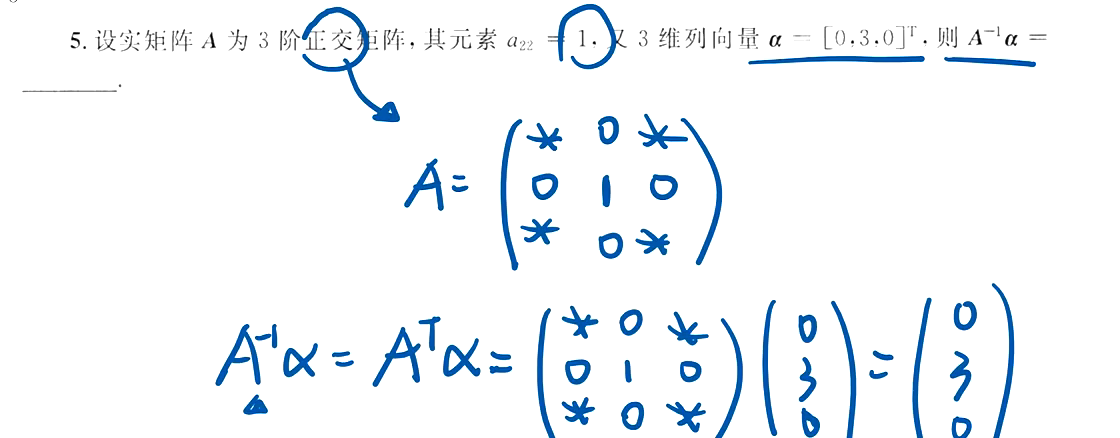 5. 设实矩阵 A 为 3 阶正交矩阵,其元素 a₂₂ = 1,又 3 维列向量 α = [0,3,0]ᵀ,则 A⁻¹α =
________.
A = ( * 0 *
0 1 0
* 0 * )
A⁻¹α = Aᵀα = ( * 0 * ) ( 0 ) = ( 0 )
( 0 1 0 ) ( 3 ) ( 3 )
( * 0 * ) ( 0 ) ( 0 )